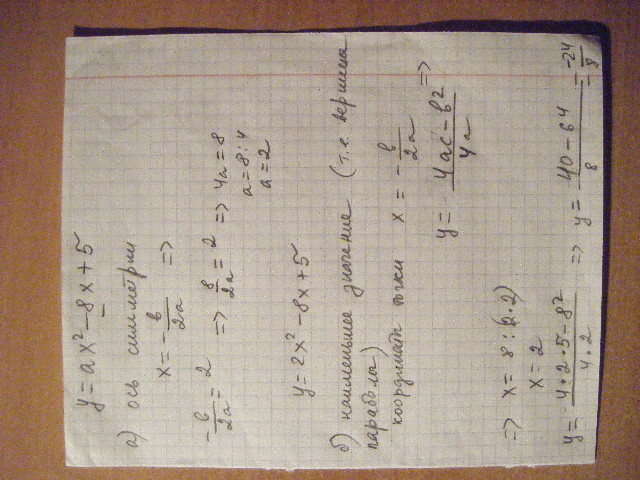 y = ax² - 8x + 5
а) ось симметрии
x = - b/2a =>
- b/2a = 2 => 8/2a = 2 => 4a = 8
a = 8 : 4
a = 2
y = 2x² - 8x + 5
б) наименьшее значение (т.е. вершина
парабола)
координаты точки x = - b/2a =>
y = (4ac - b²)/4a
=> x = 8 : (2·2)
x = 2
y = (4·2·5 - 8²)/(4·2) => y = (40 - 64)/8 = -24/8